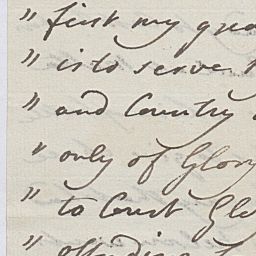 " first my grea
" is to serve
" and Country
" only of Glory
" to Court Gl